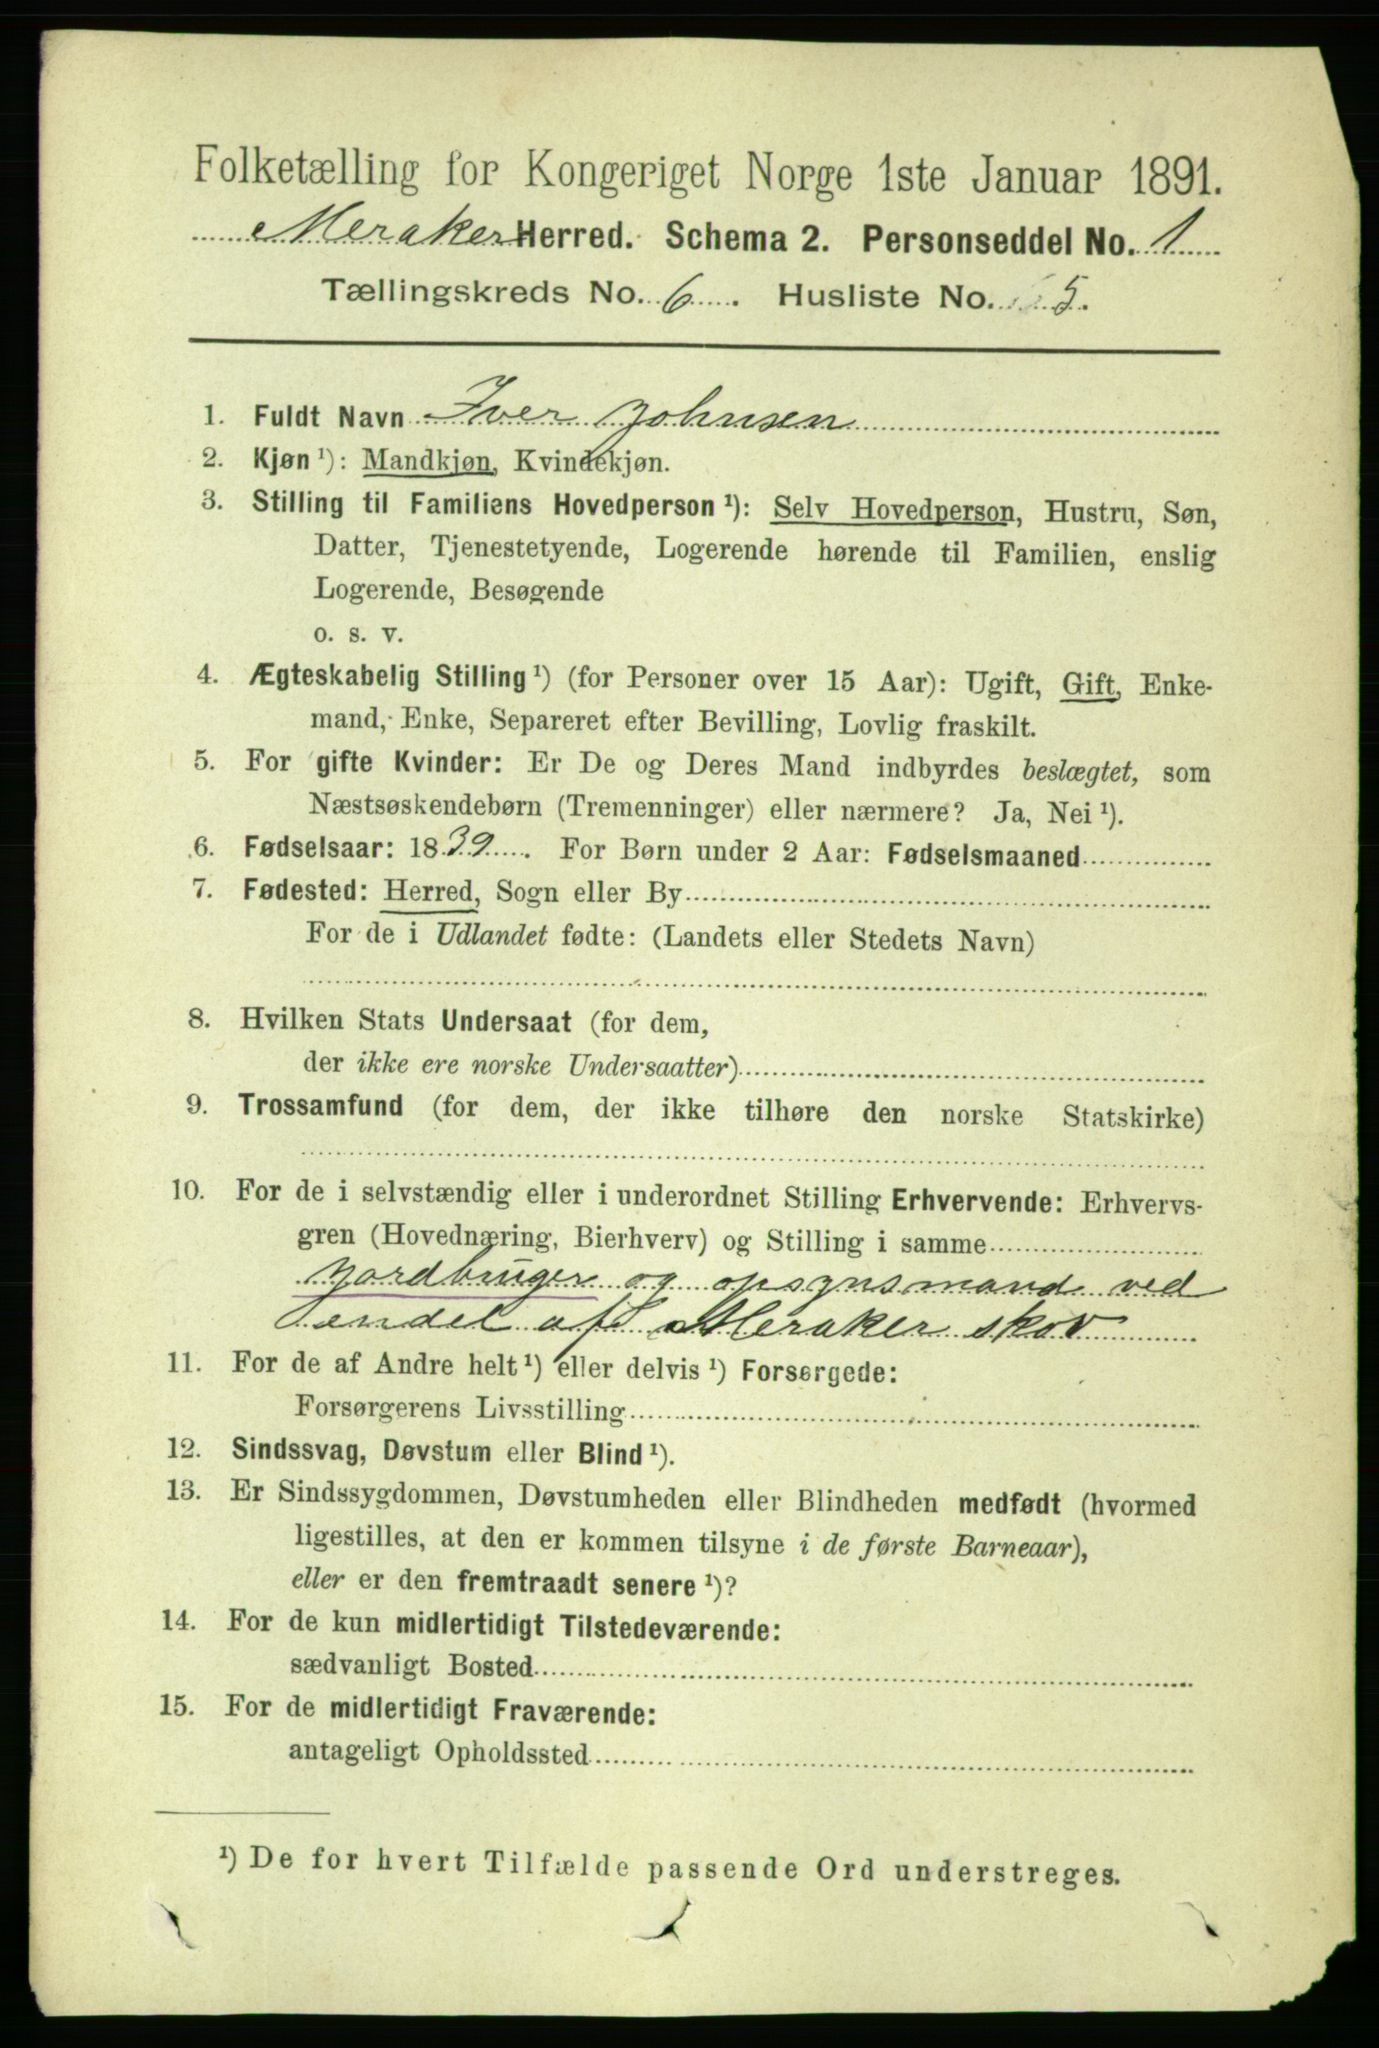 Folketælling for Kongeriget Norge 1ste Januar 1891.
Meraker Herred. Schema 2. Personseddel No. 1
Tællingskreds No. 6. Husliste No. 5.
1. Fuldt Navn Iver Johnsen
2. Kjøn ¹): Mandkjøn, Kvindekjøn.
3. Stilling til Familiens Hovedperson ¹): Selv Hovedperson, Hustru, Søn,
Datter, Tjenestetyende, Logerende hørende til Familien, enslig
Logerende, Besøgende
o. s. v.
4. Ægteskabelig Stilling ¹) (for Personer over 15 Aar): Ugift, Gift, Enke-
mand, Enke, Separeret efter Bevilling, Lovlig fraskilt.
5. For gifte Kvinder: Er De og Deres Mand indbyrdes beslægtet, som
Næstsøskendebørn (Tremenninger) eller nærmere? Ja, Nei ¹).
6. Fødselsaar: 1839. For Børn under 2 Aar: Fødselsmaaned
7. Fødested: Herred, Sogn eller By
For de i Udlandet fødte: (Landets eller Stedets Navn)
8. Hvilken Stats Undersaat (for dem,
der ikke ere norske Undersaatter)
9. Trossamfund (for dem, der ikke tilhøre den norske Statskirke)
10. For de i selvstændig eller i underordnet Stilling Erhvervende: Erhvervs-
gren (Hovednæring, Bierhverv) og Stilling i samme
Jordbruger og opsynsmand ved
endel af Meraker skov
11. For de af Andre helt ¹) eller delvis ¹) Forsørgede:
Forsørgerens Livsstilling
12. Sindssvag, Døvstum eller Blind ¹).
13. Er Sindssygdommen, Døvstumheden eller Blindheden medfødt (hvormed
ligestilles, at den er kommen tilsyne i de første Barneaar),
eller er den fremtraadt senere ¹)?
14. For de kun midlertidigt Tilstedeværende:
sædvanligt Bosted
15. For de midlertidigt Fraværende:
antageligt Opholdssted
¹) De for hvert Tilfælde passende Ord understreges.